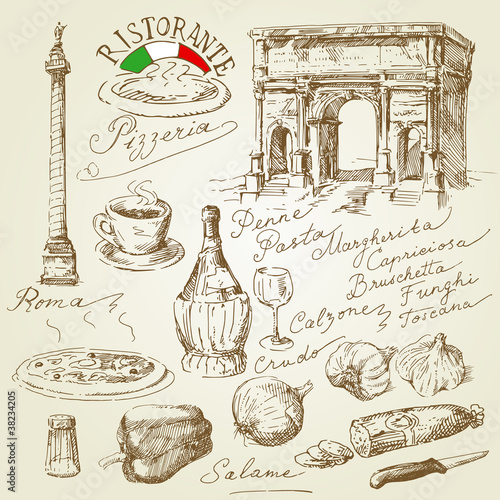 RISTORANTE
Pizzeria
Penne
Pasta
Margherita
Capriciosa
Bruschetta
Funghi
Toscana
Calzone
Crudo
Roma
Salame
38234205